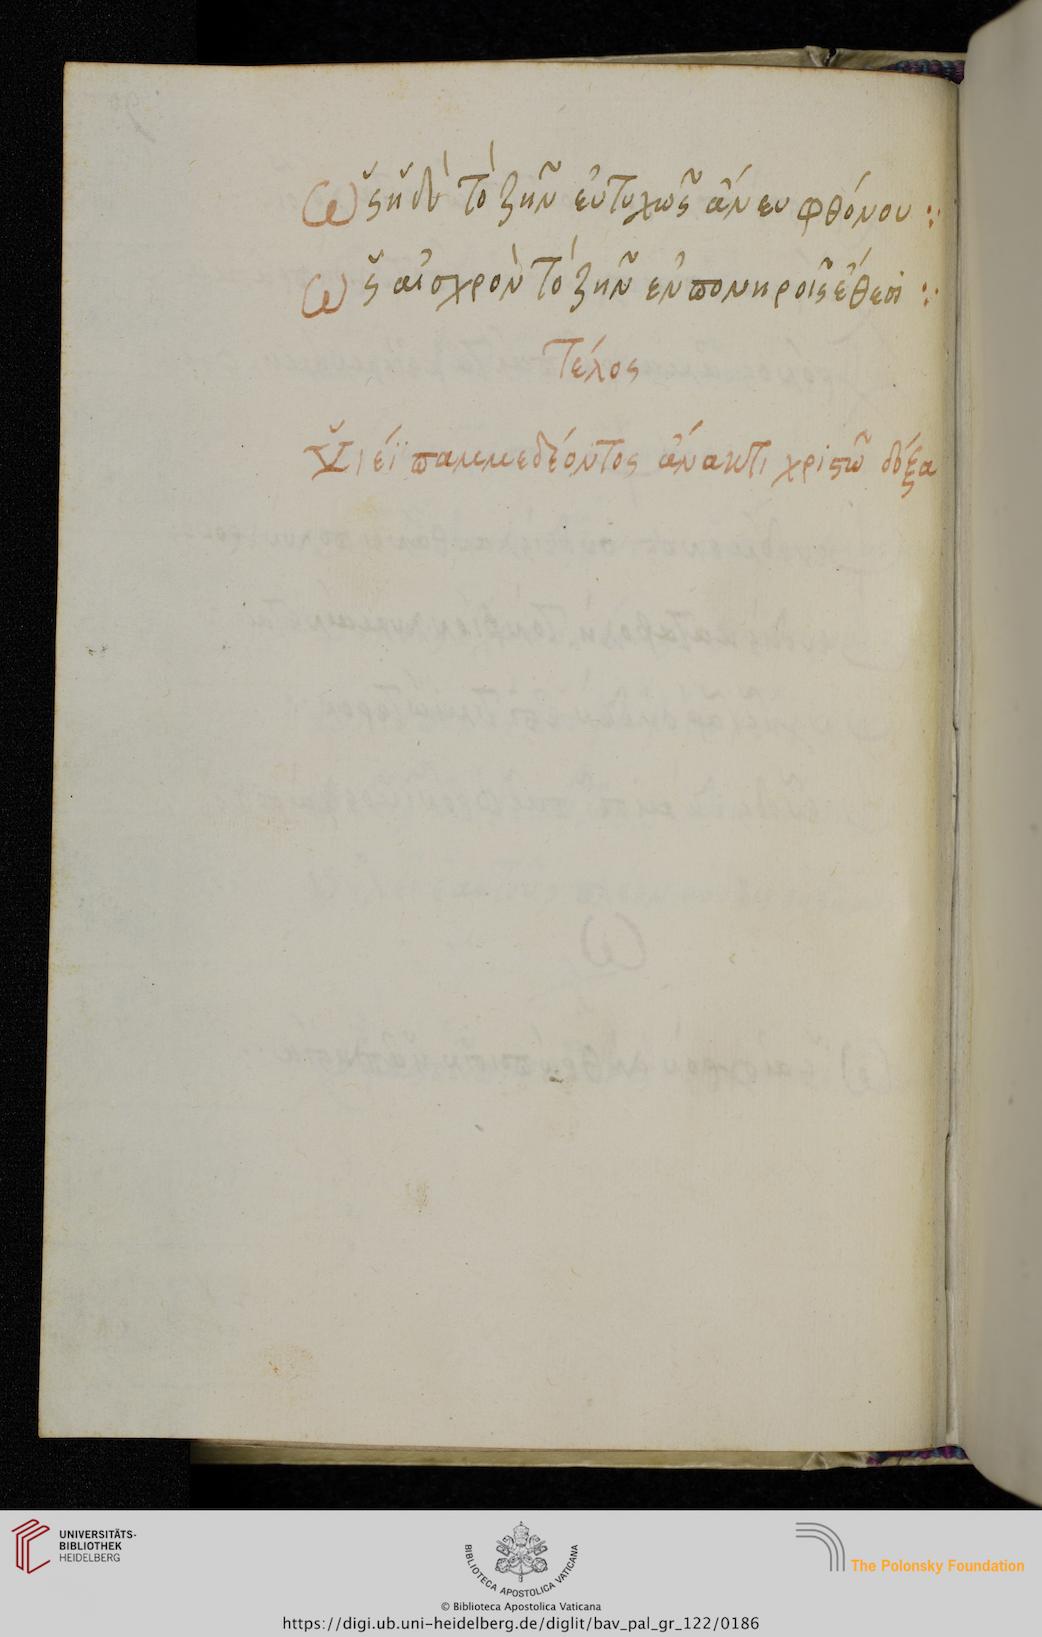 Ὡς ἡδὺ τὸ ζῆν εὐτυχῶς ἄνευ φθόνου :·
Ὡς αἰσχρὸν τὸ ζῆν ἐν πονηροῖς ἔθεσι :·
Τέλος
Υἱέϊ παμμεδέοντος ἄνακτι χριστῶ δόξα
UNIVERSITÄTS-
BIBLIOTHEK
HEIDELBERG
BIBLIOTECA APOSTOLICA VATICANA
The Polonsky Foundation
© Biblioteca Apostolica Vaticana
https://digi.ub.uni-heidelberg.de/diglit/bav_pal_gr_122/0186